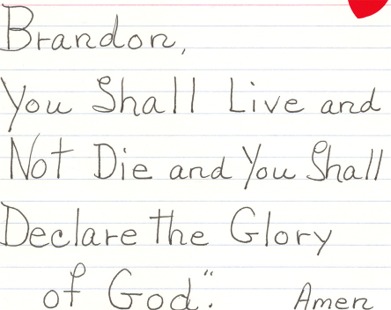 Brandon,
You Shall Live and
Not Die and You Shall
Declare the Glory
of God". Amen